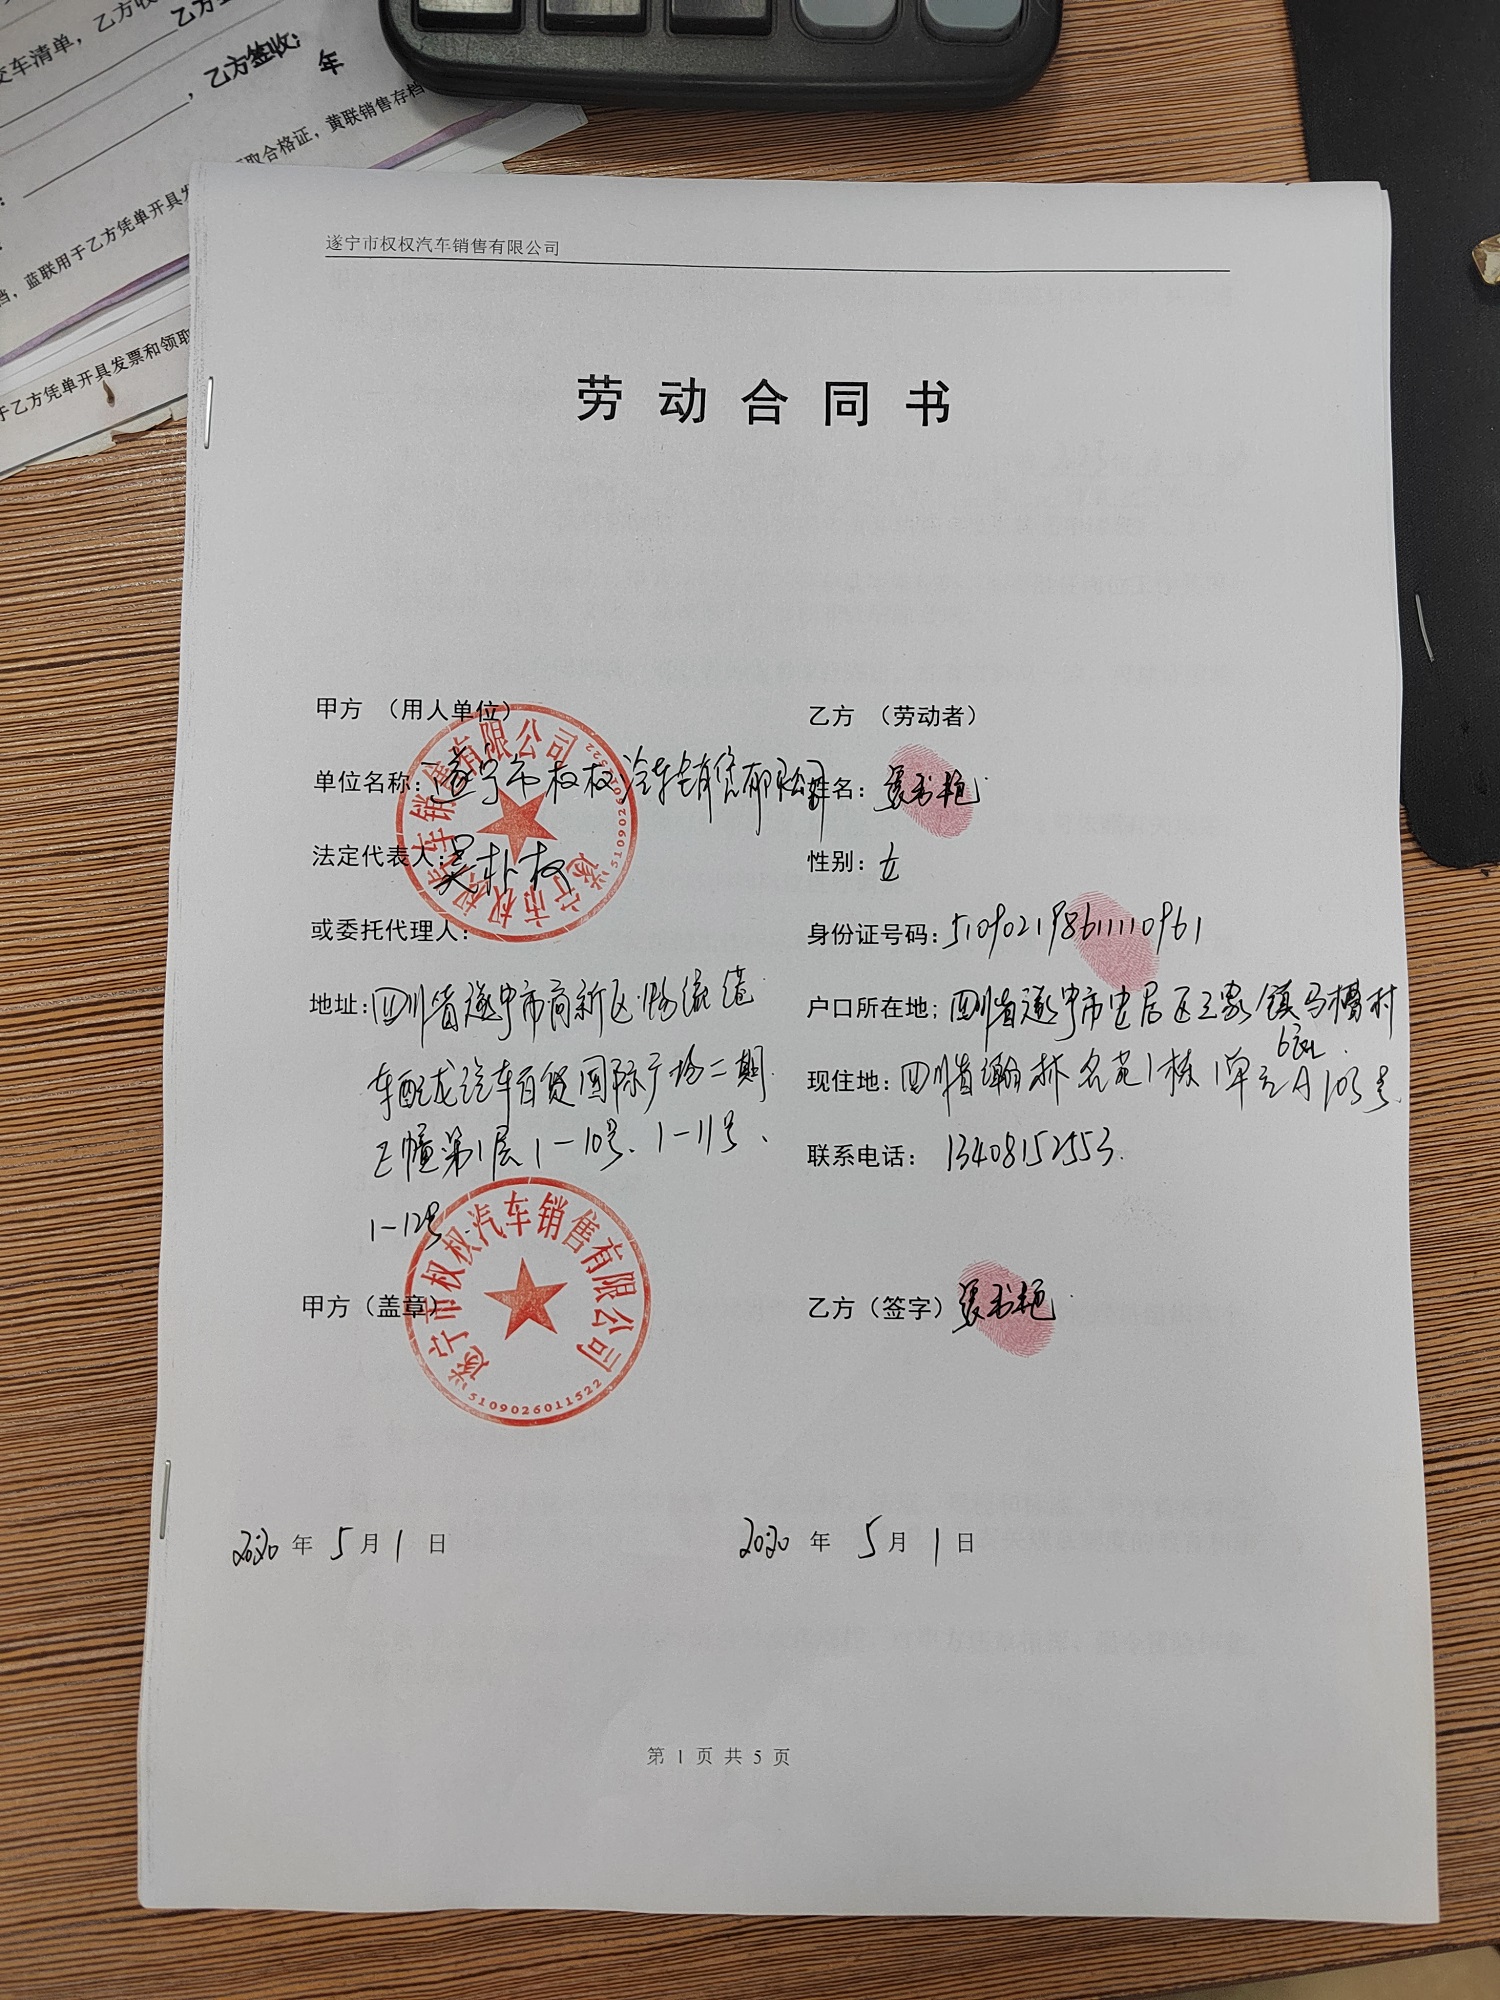 交车清单，乙方收
，乙方签收：
年
取合格证，黄联销售存档
蓝联用于乙方凭单开具发
于乙方凭单开具发票和领取
遂宁市权权汽车销售有限公司
劳动合同书
甲方 （用人单位）
乙方 （劳动者）
单位名称：遂宁市权权汽车销售有限公司
姓名：张书艳
法定代表人：吴朴权
性别：女
或委托代理人：
身份证号码：510902198611110961
地址：四川省遂宁市高新区物流港
户口所在地；四川省遂宁市安居区三家镇马槽村
6社
车配龙汽车百货国际广场二期
现住地：四川省瀚林名苑1栋1单元A103号
E幢第1层1-10号、1-11号、
联系电话：13408152553.
1-12号
甲方（盖章）
乙方（签字）张书艳
遂宁市权权汽车销售有限公司
5109026011522
遂宁市权权汽车销售有限公司
5109026011522
2020 年 5 月 1 日
2020 年 5 月 1 日
第 1 页 共 5 页